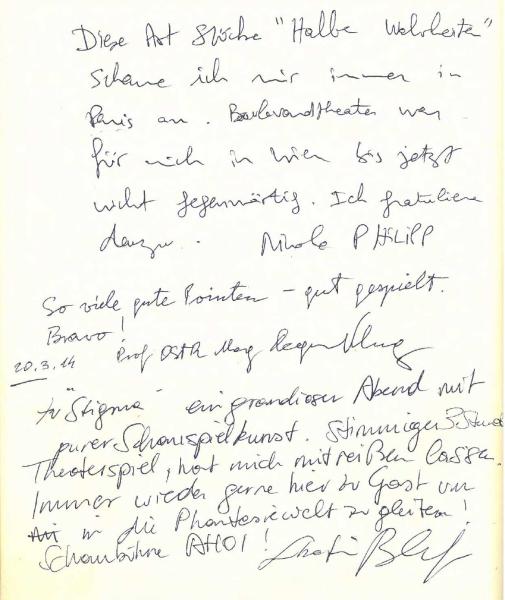 Diese Art Stücke "Halbe Wahrheiten"
schaue ich mir immer in
Paris an. Boulevardtheater war
für mich in Wien bis jetzt
nicht gegenwärtig. Ich gratuliere
dazu. Nicole PHILIPP
So viele gute Pointen – gut gespielt.
Bravo!
20.3.14 Prof OStR Mag
zu "Stigma" ein grandioser Abend mit
purer Schauspielkunst. Stimmiges
Theaterspiel, hat mich mitreißen lassen.
Immer wieder gerne hier zu Gast um
in die Phantasiewelt zu gleiten!
Schaubühne AHOI!